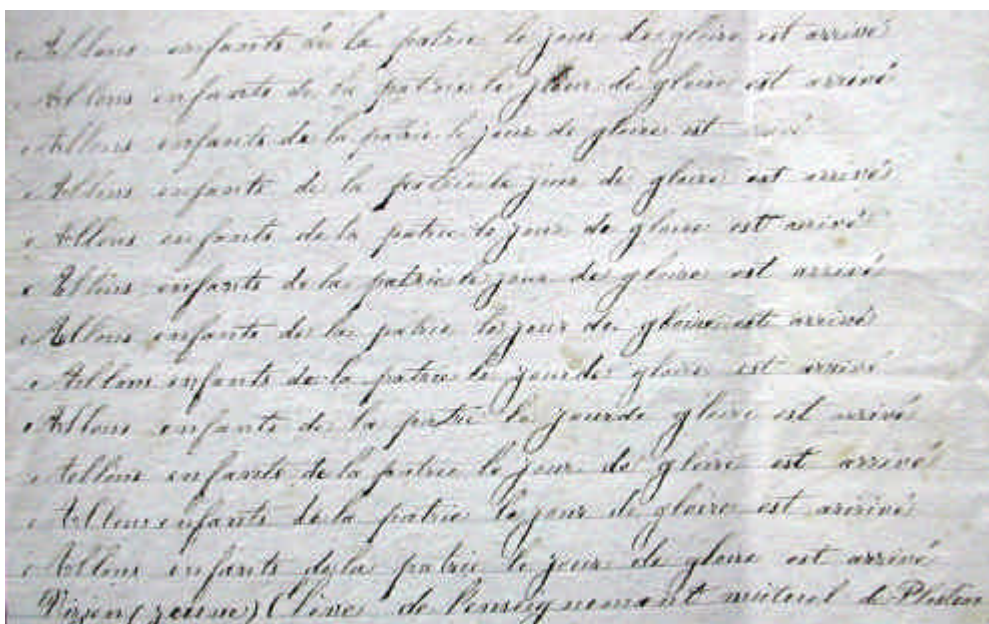 Allons enfants de la patrie le jour de gloire est arrivé
Allons enfants de la patrie le jour de gloire est arrivé
Allons enfants de la patrie le jour de gloire est rivé
Allons enfants de la patrie le jour de gloire est arrivé
Allons enfants de la patrie le jour de gloire est arrivé
Allons enfants de la patrie le jour de gloire est arrivé
Allons enfants de la patrie le jour de gloire est arrivé
Allons enfants de la patrie le jour de gloire est arrivé
Allons enfants de la patrie le jour de gloire est arrivé
Allons enfants de la patrie le jour de gloire est arrivé
Allons enfants de la patrie le jour de gloire est arrivé
Allons enfants de la patrie le jour de gloire est arrivé
(jeune) Elève de l'enseignement mutuel de